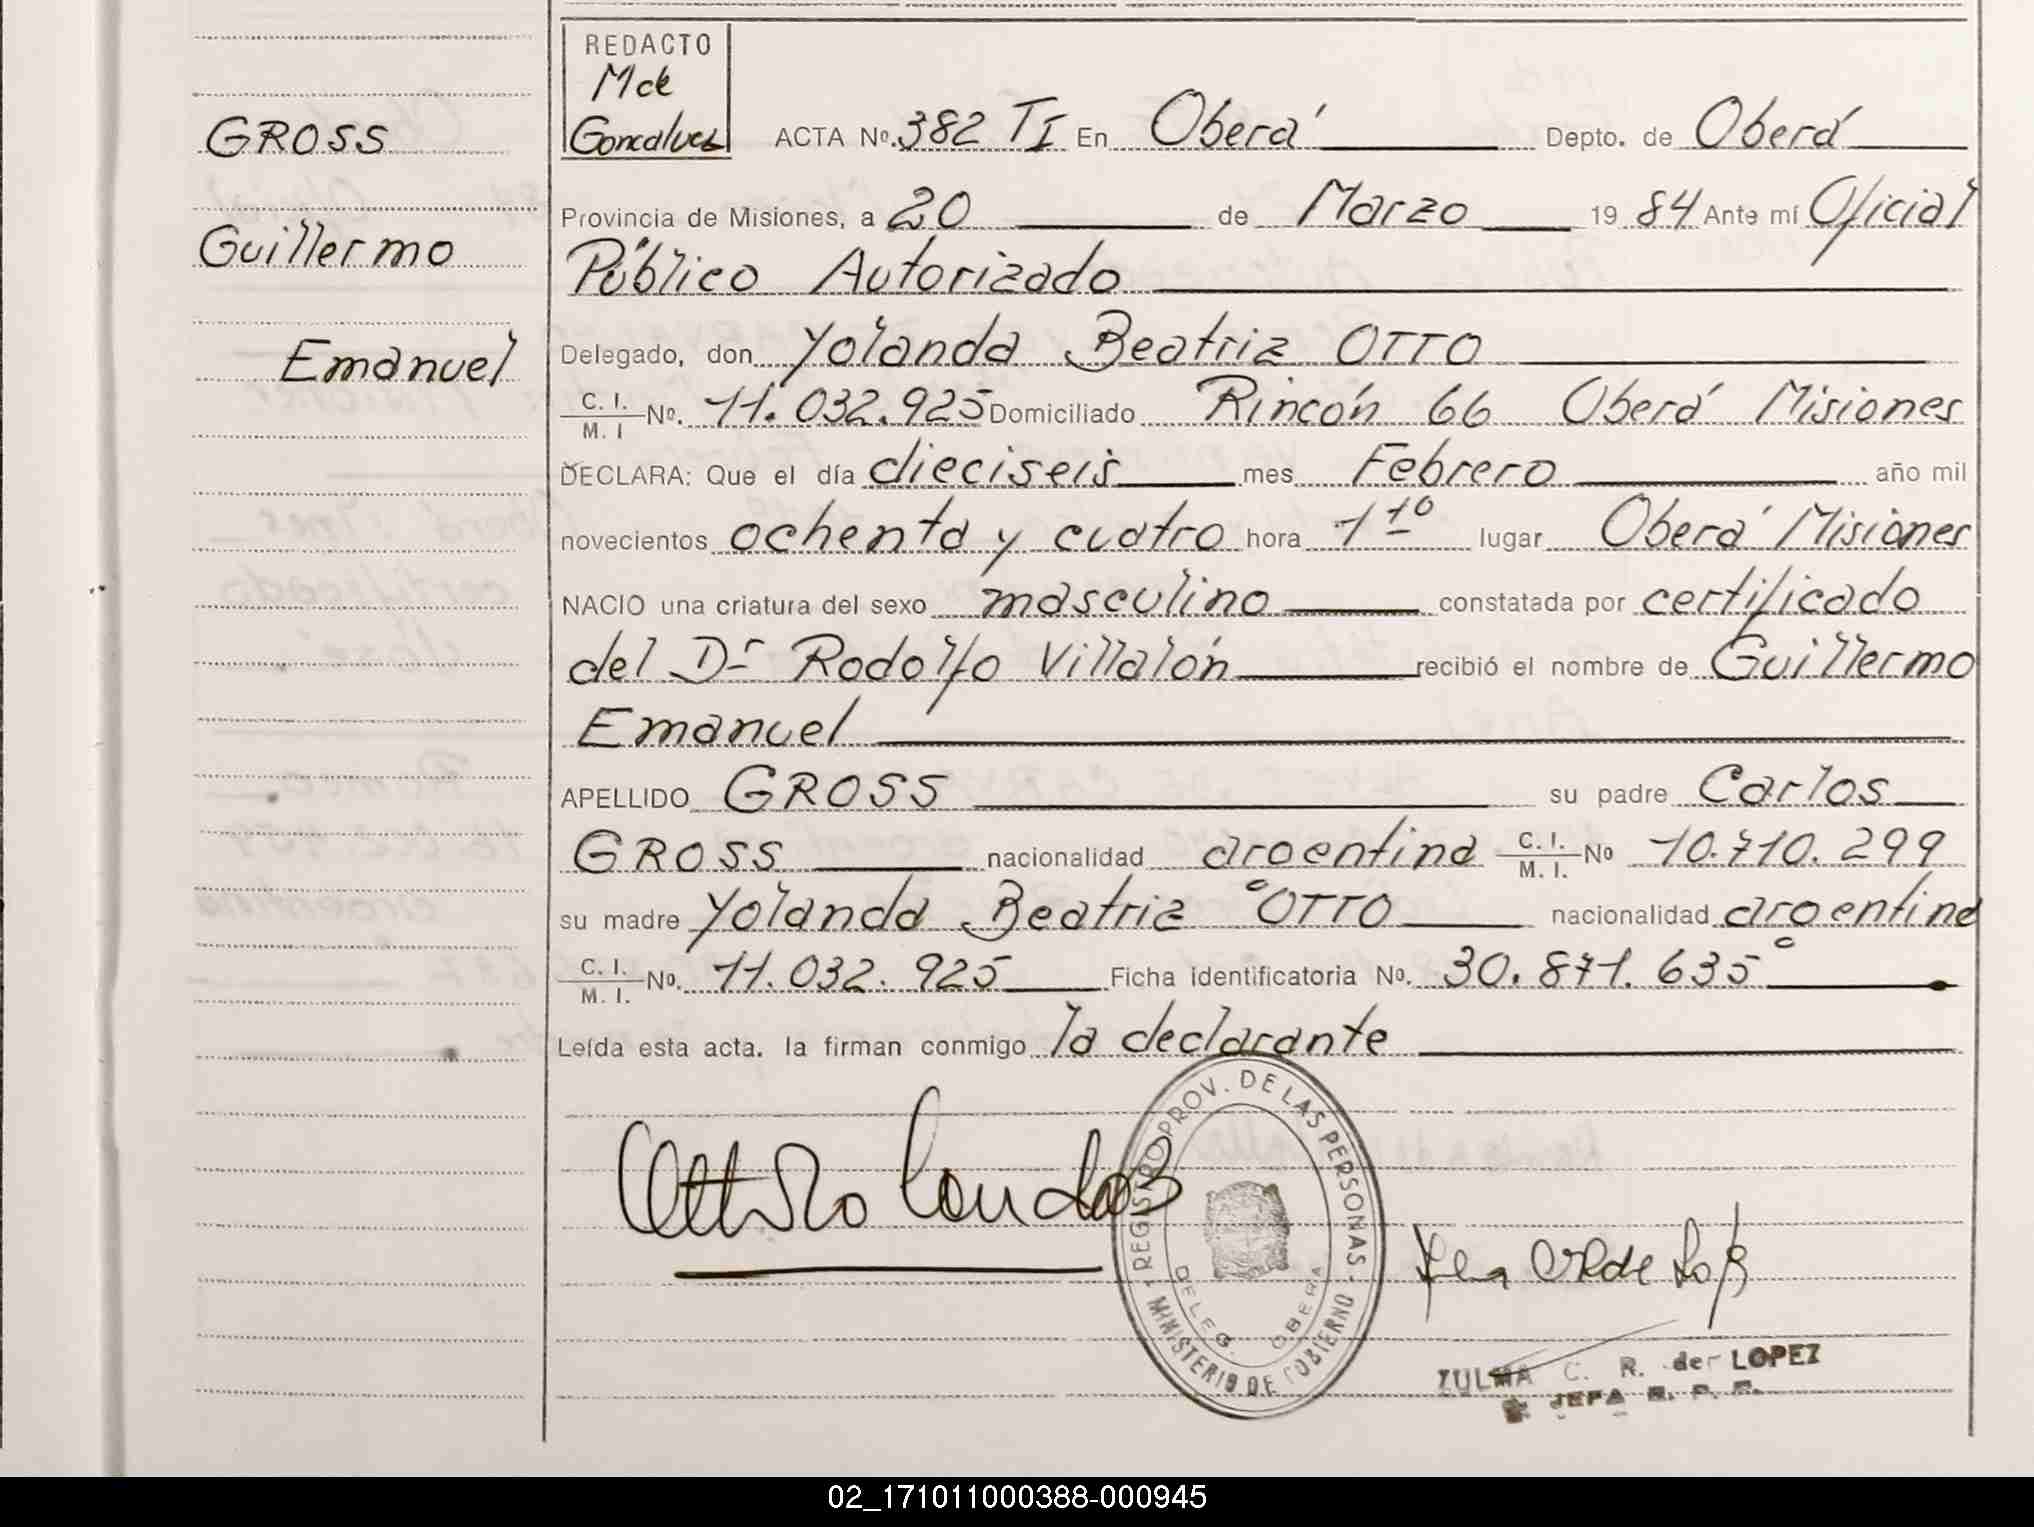 GROSS
Guillermo
Emanuel
REDACTO
M de
Goncalvez
ACTA Nº. 382 TI En Oberá Depto. de Oberá
Provincia de Misiones, a 20 de Marzo 19 84 Ante mí Oficial
Público Autorizado
Delegado, don Yolanda Beatriz OTTO
C. I. / M. I Nº. 11.032.925 Domiciliado Rincón 66 Oberá Misiones
DECLARA: Que el día dieciseis mes Febrero año mil
novecientos ochenta y cuatro hora 1 10 lugar Oberá Misiones
NACIO una criatura del sexo masculino constatada por certificado
del Dr Rodolfo Villalón recibió el nombre de Guillermo
Emanuel
APELLIDO GROSS su padre Carlos
GROSS nacionalidad argentina C. I. / M. I. Nº 10.710.299
su madre Yolanda Beatriz OTTO nacionalidad argentina
C. I. / M. I. Nº. 11.032.925 Ficha identificatoria Nº. 30.871.635
Leída esta acta. la firman conmigo la declarante
REGISTRO PROV. DE LAS PERSONAS - MINISTERIO DE GOBIERNO -
DELEG. OBERA
ZULMA C. R. de LOPEZ
JEFA R. P. P.
02_171011000388-000945